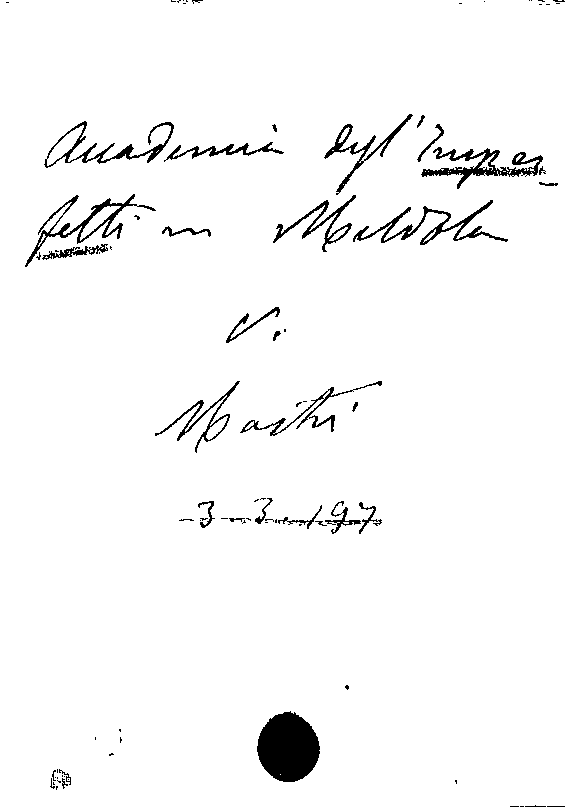 Accademia degl'Imper-
fetti in Meldola
V.
Mastri
3-3-197